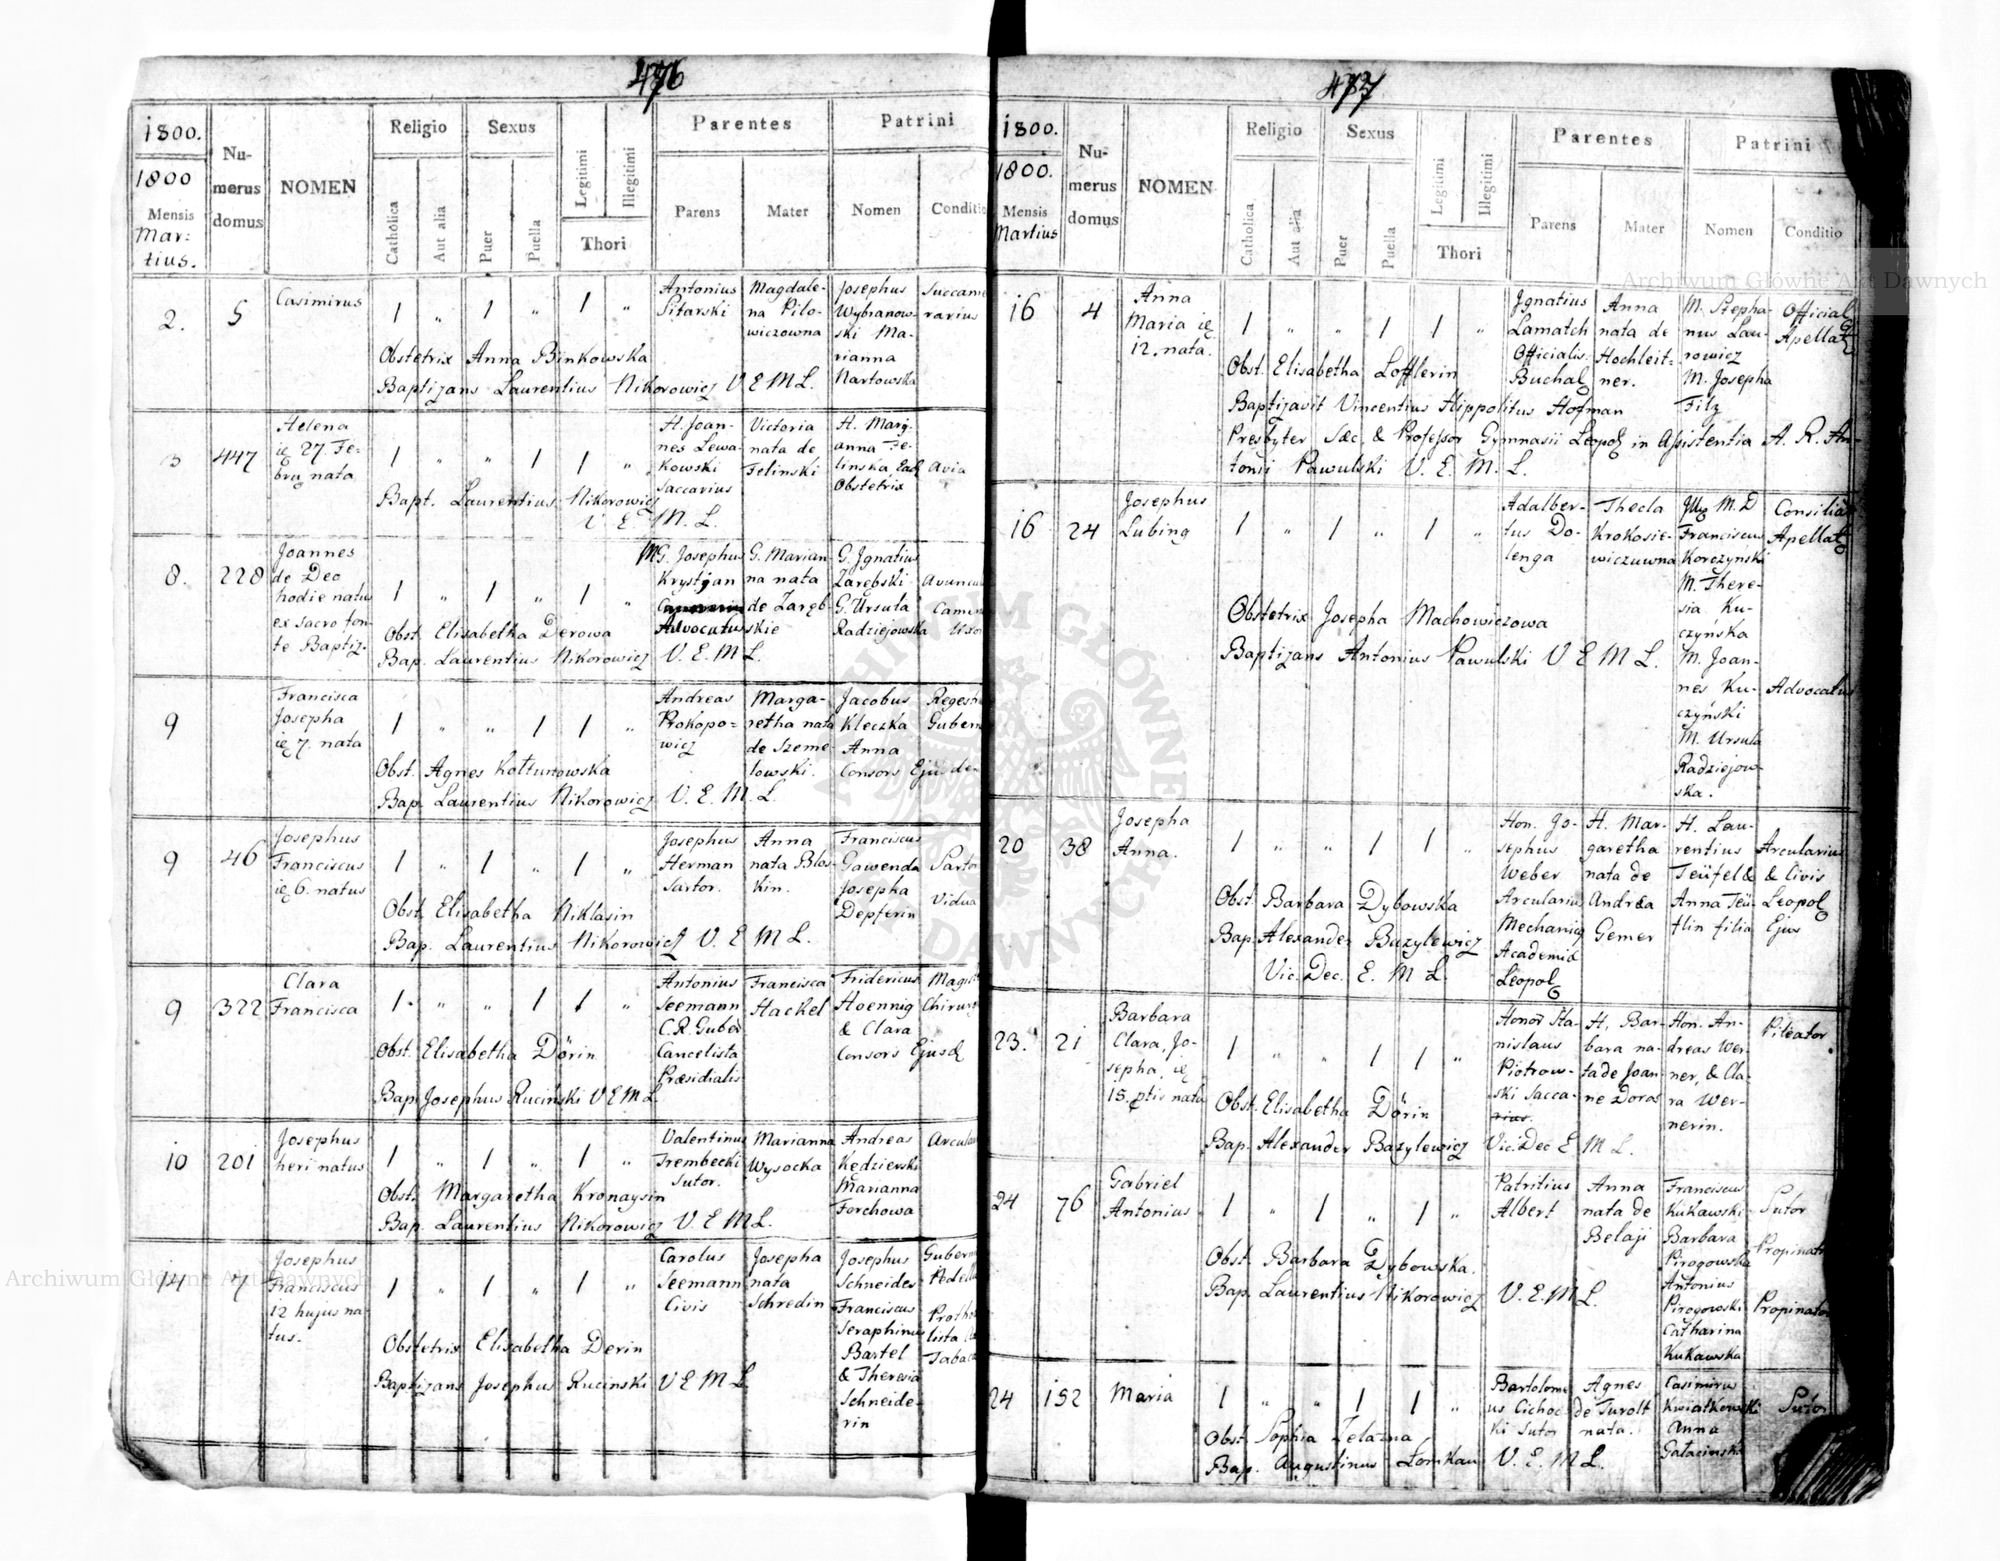 476
1800.
1800
Mensis
Mar:
tius.
Nu-
merus
domus
NOMEN
Religio
Catholica
Aut alia
Sexus
Puer
Puella
Legitimi
Illegitimi
Thori
Parentes
Parens
Mater
Patrini
Nomen
Conditio
2.
5
Casimirus
1 " 1 " 1 "
Antonius
Pitarski
Magdale-
na Pilo-
wiczowna
Josephus
Wybranow-
ski Ma-
rianna
Nartowska
Succame
rarius
Obstetrix Anna Binkowska
Baptizans Laurentius Nikorowicz V E M L.
3
447
Helena
27 Fe-
bru nata
1 " " 1 1 "
H. Joan-
nes Lewa-
kowski
Saccarius
Victoria
nata de
Felinski
H. Mary-
anna Fe-
linska Ead
Obstetrix
Avia
Bapt. Laurentius Nikorowicz
V. E. M. L.
8.
228
Joannes
de Deo
hodie natus
ex sacro fon-
te Baptiz.
1 " 1 " 1 "
MG. Josephus
Krystyan
Advocatus
G. Marian
na nata
de Zaręb-
skie
G. Ignatius
Zarębski
G. Ursula
Radziejowska
Avuncul
Obst. Elisabetha Derowa
Bap. Laurentius Nikorowicz V. E. M L.
9
Francisca
Josepha
7. nata
1 " " 1 1 "
Andreas
Prokopo=
wicz
Marga-
retha nata
de Szeme-
lowski.
Jacobus
Kleczka
Anna
Consors Ejusdem
Regestr
Gubern
Obst. Agnes Kołtunowska
Bap. Laurentius Nikorowicz V. E. M. L.
9
46
Josephus
Franciscus
6. natus
1 " 1 " 1 "
Josephus
Herman
Sartor.
Anna
nata Blos-
kin.
Franciscus
Gawenda
Josepha
Depferin
Sarto
Vidua
Obst. Elisabetha Niklasin
Bap. Laurentius Nikorowicz V. E M L.
9
322
Clara
Francisca
1 " " 1 1 "
Antonius
Seemann
C. R. Guber
Cancelista
Præsidialis
Francisca
Hackel
Fridericus
Hoennig
& Clara
Consors Ejusd
Magi
Chirur
Obst. Elisabetha Dörin
Bap. Josephus Ruciński V E M L
10
201
Josephus
heri natus
1 " 1 " 1 "
Valentinus
Trembecki
Sutor.
Marianna
Wysocka
Andreas
Kędzierski
Marianna
Forchowa
Arcula
Obst. Margaretha Kronaysin
Bap. Laurentius Nikorowicz V. E M L.
14
7
Josephus
Franciscus
12 hujus na-
tus.
1 " 1 " 1 "
Carolus
Seemann
Civis
Josepha
nata
Schredin
Josephus
Schneider
Franciscus
Seraphinus
Bartel
& Theresia
Schneide-
rin
Gubern
Pedell
lista
Taba
Obstetrix Elisabetha Derin
Baptizans Josephus Rucinski V E M L
477
1800.
1800.
Mensis
Martius
Nu-
merus
domus
NOMEN
Religio
Catholica
Aut alia
Sexus
Puer
Puella
Legitimi
Illegitimi
Thori
Parentes
Parens
Mater
Patrini
Nomen
Conditio
16
4
Anna
Maria
12. nata.
1 " " 1 1 "
Ignatius
Lamatch
Officialis.
Buchal
Anna
nata de
Hochleit-
ner.
M. Stepha-
nus Lau-
rowicz
M. Josepha
Filz
Official
Apellat
Obst. Elisabetha Lofflerin
Baptizavit Vincentius Hippolitus Hofman
Presbyter Sæc. & Professor Gymnasii Leopol in Assistentia A. R. An-
tonii Pawulski V. E. M. L.
16
24
Josephus
Lubing
1 " 1 " 1 "
Adalber-
tus Do-
lenga
Thecla
Krokosie-
wiczuwna
M. D
Franciscus
Korczynski
M. There-
sia Ku-
czyńska
M. Joan-
nes Ku-
czyński
M. Ursula
Radziejow-
ska.
Consilia
Apellat
Advocatus
Obstetrix Josepha Machowiczowa
Baptizans Antonius Pawulski V E M L.
20
38
Josepha
Anna.
1 " " 1 1 "
Hon. Jo-
sephus
Weber
Arcularius
Mechanicg
Academiæ
Leopol
H. Mar-
garetha
nata de
Andrea
Gemer
H. Lau-
rentius
Teüfel &
Anna Teü-
flin filia
Arcularius
& Civis
Leopol
Ejus
Obst. Barbara Dybowska
Bap. Alexander Bazylewicz
Vic. Dec. E. M L.
23.
21
Barbara
Clara, Jo-
sepha,
15. nata
1 " " 1 1 "
Honor Sta-
nislaus
Piotrow-
ski Sacca-
rius.
H. Bar-
bara na-
ta de Joan-
ne Doras
Hon. An-
dreas Wer-
ner, & Cla-
ra Wer-
nerin.
Pileator
Obst. Elisabetha Dörin
Bap. Alexander Bazylewicz Vic. Dec E M L.
24
76
Gabriel
Antonius
1 " 1 " 1 "
Patritius
Albert
Anna
nata de
Belaji
Franciscus
Kukawski
Barbara
Pirogowska
Antonius
Pirogowski
Catharina
Kukawska
Sutor
Propinat
Propinator
Obst. Barbara Dybowska.
Bap. Laurentius Nikorowicz V. E. M L.
24
152
Maria
1 " " 1 1 "
Bartolome
us Cichoc-
ki Sutor
Agnes
de Turolt
nata.
Casimirus
Kwiatkowski
Anna
Gałacinski
Sutor
Obst. Sophia Zelazna
Bap. Augustinus Łomkau V. E. M L.
Archiwum Główne Akt Dawnych
Archiwum Główne Akt Dawnych
ARCHIWUM GŁÓWNE AKT DAWNYCH